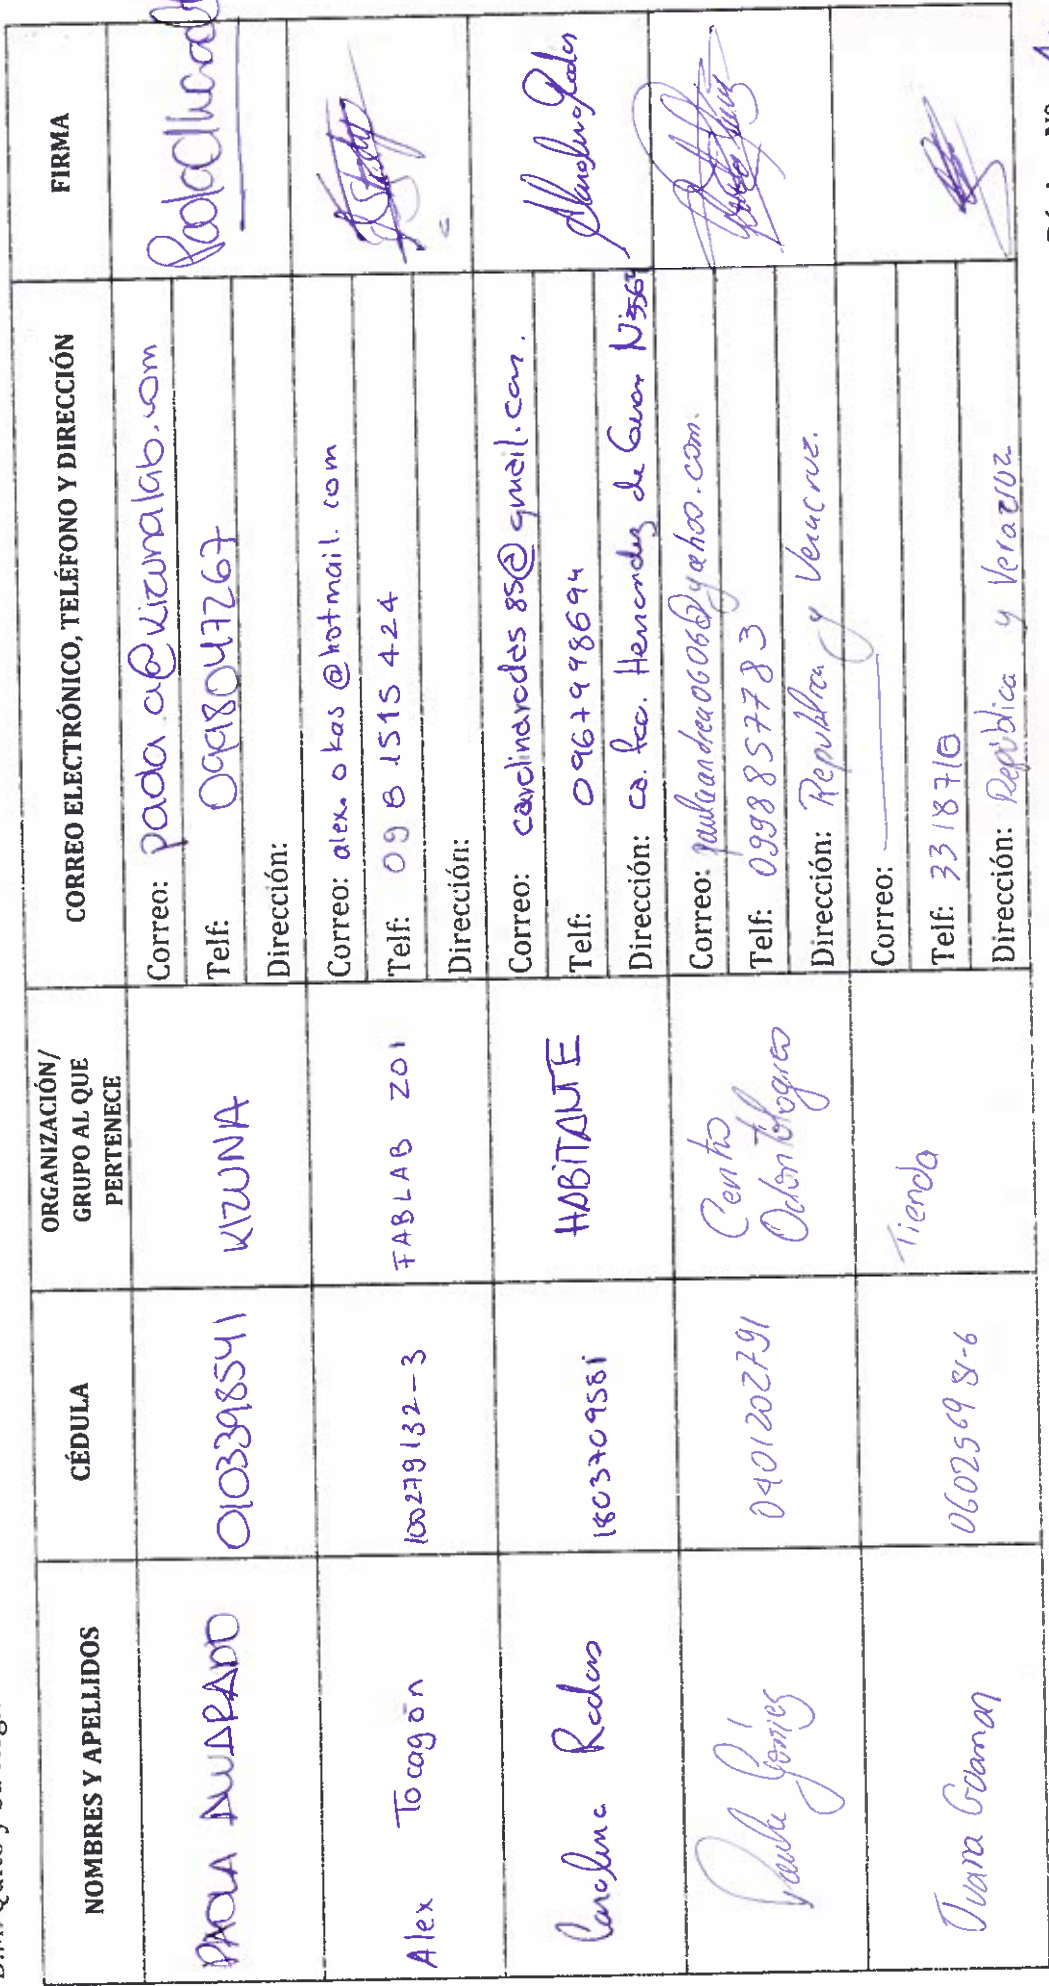 NOMBRES Y APELLIDOS
CÉDULA
ORGANIZACIÓN/
GRUPO AL QUE
PERTENECE
CORREO ELECTRÓNICO, TELÉFONO Y DIRECCIÓN
FIRMA
PAOLA ALVARADO
0103398541
KIZUNA
Correo: paola.a@kizunalab.com
Telf: 0998047267
Dirección:
Alex Tocagón
100279132-3
FABLAB ZOI
Correo: alex.okas@hotmail.com
Telf: 0981515424
Dirección:
Carolina Rodas
1803709581
HABITANTE
Correo: carolinarodas85@gmail.com.
Telf: 0967998694
Dirección: Hernandez de
Paula Gómez
0401202791
Centro
Odontológico
Correo: paulaandrea0606@yahoo.com.
Telf: 0998857783
Dirección: República y Veracruz.
Juana Guaman
060256981-6
Tienda
Correo:
Telf: 3318710
Dirección: República y Veracruz